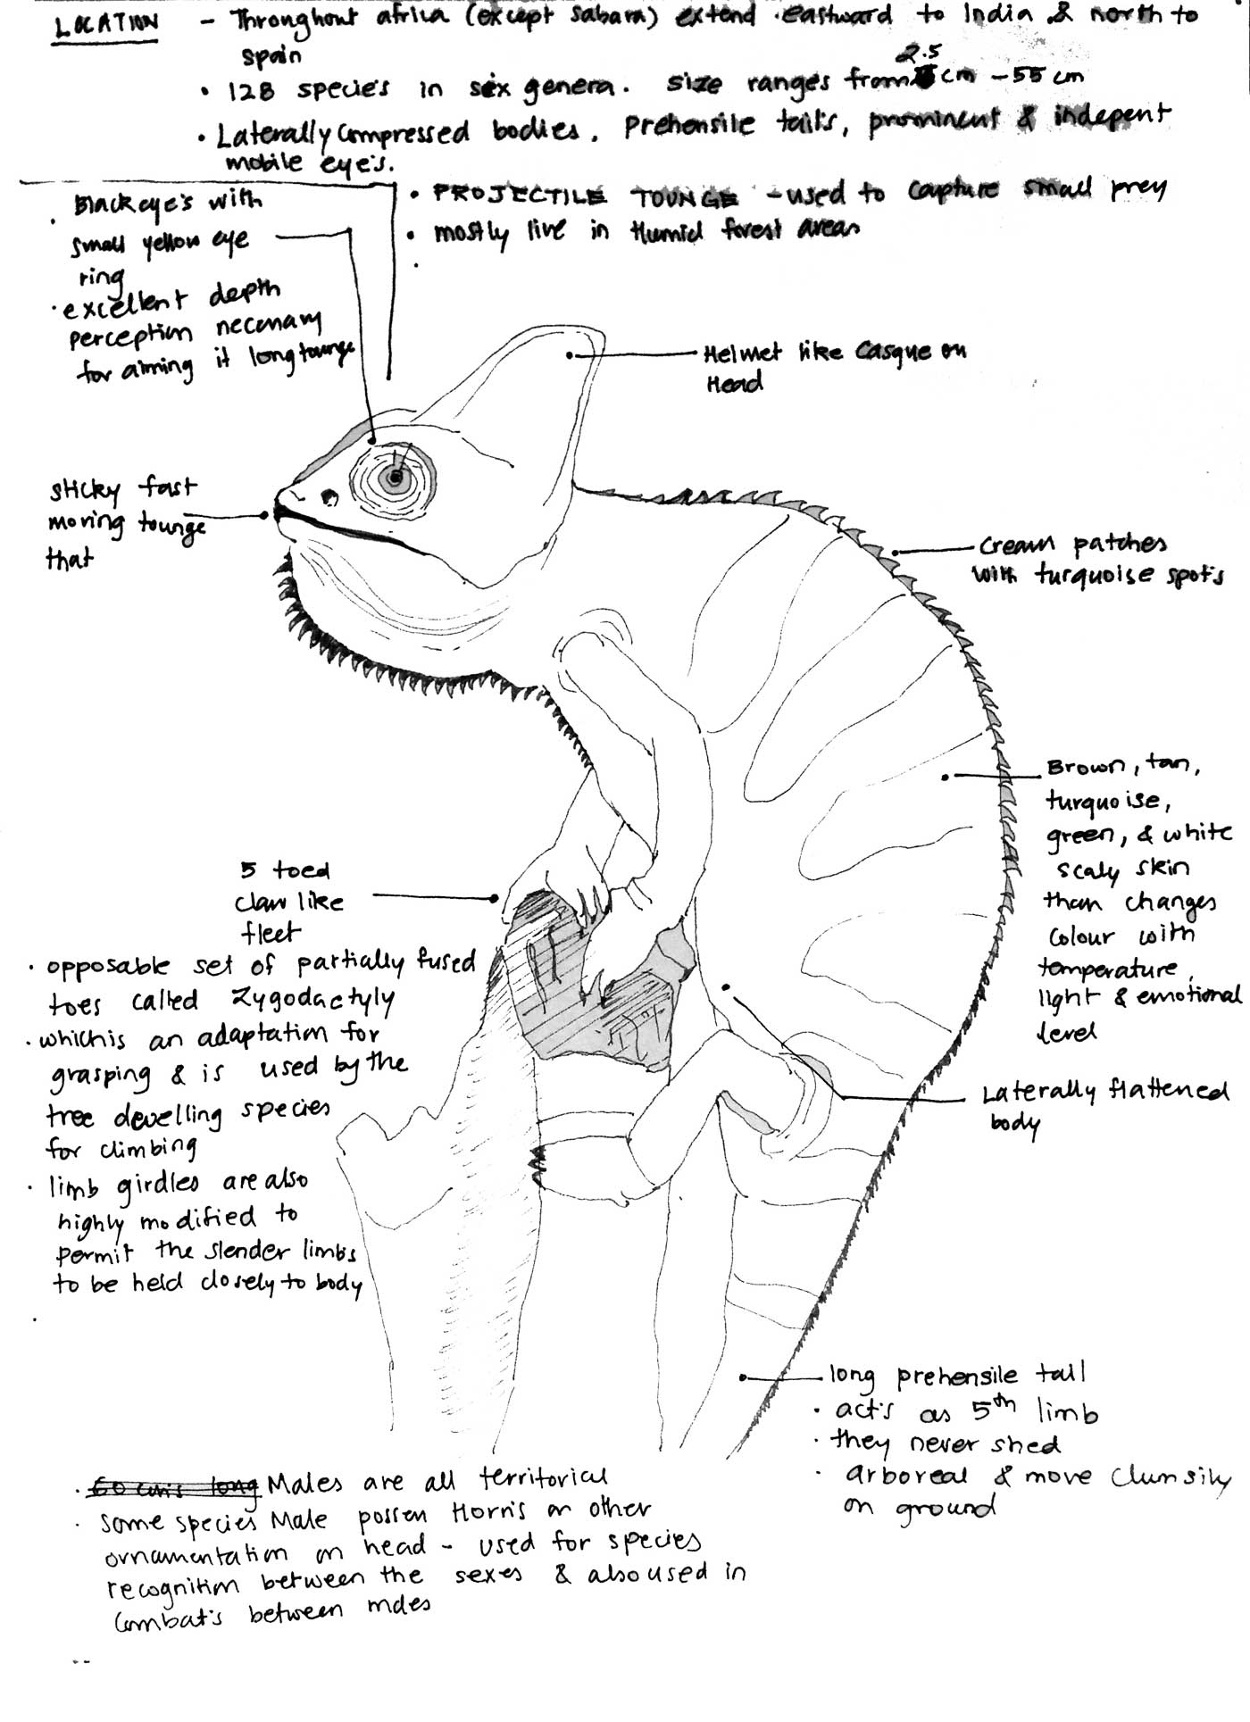 LOCATION - Throughout africa (except Sahara) extend eastward to India & north to
Spain
• 128 species in six genera. size ranges from 2.5 cm - 55 cm
• Laterally compressed bodies. Prehensile tails, prominent & indepent
mobile eye's.
• PROJECTILE TOUNGE - used to capture small prey
• mostly live in Humid forest areas
• Black eye's with
small yellow eye
ring
• excellent depth
perception necenary
for aiming it long tounge
Helmet like Casque on
Head
sticky fast
moving tounge
that
Cream patches
with turquoise spots
Brown, tan,
turquoise,
green, & white
scaly skin
than changes
colour with
temperature,
light & emotional
level
5 toed
claw like
feet
• opposable set of partially fused
toes called Zygodactyly
• which is an adaptation for
grasping & is used by the
tree dewelling species
for climbing
• limb girdles are also
highly modified to
permit the slender limbs
to be held closely to body
Laterally flattened
body
long prehensile tail
• act's as 5th limb
• they never shed
• arboreal & move clumsily
on ground
• Males are all territorial
• some species Male possen Horns or other
ornamentation on head - used for species
recognition between the sexes & also used in
Combat's between males